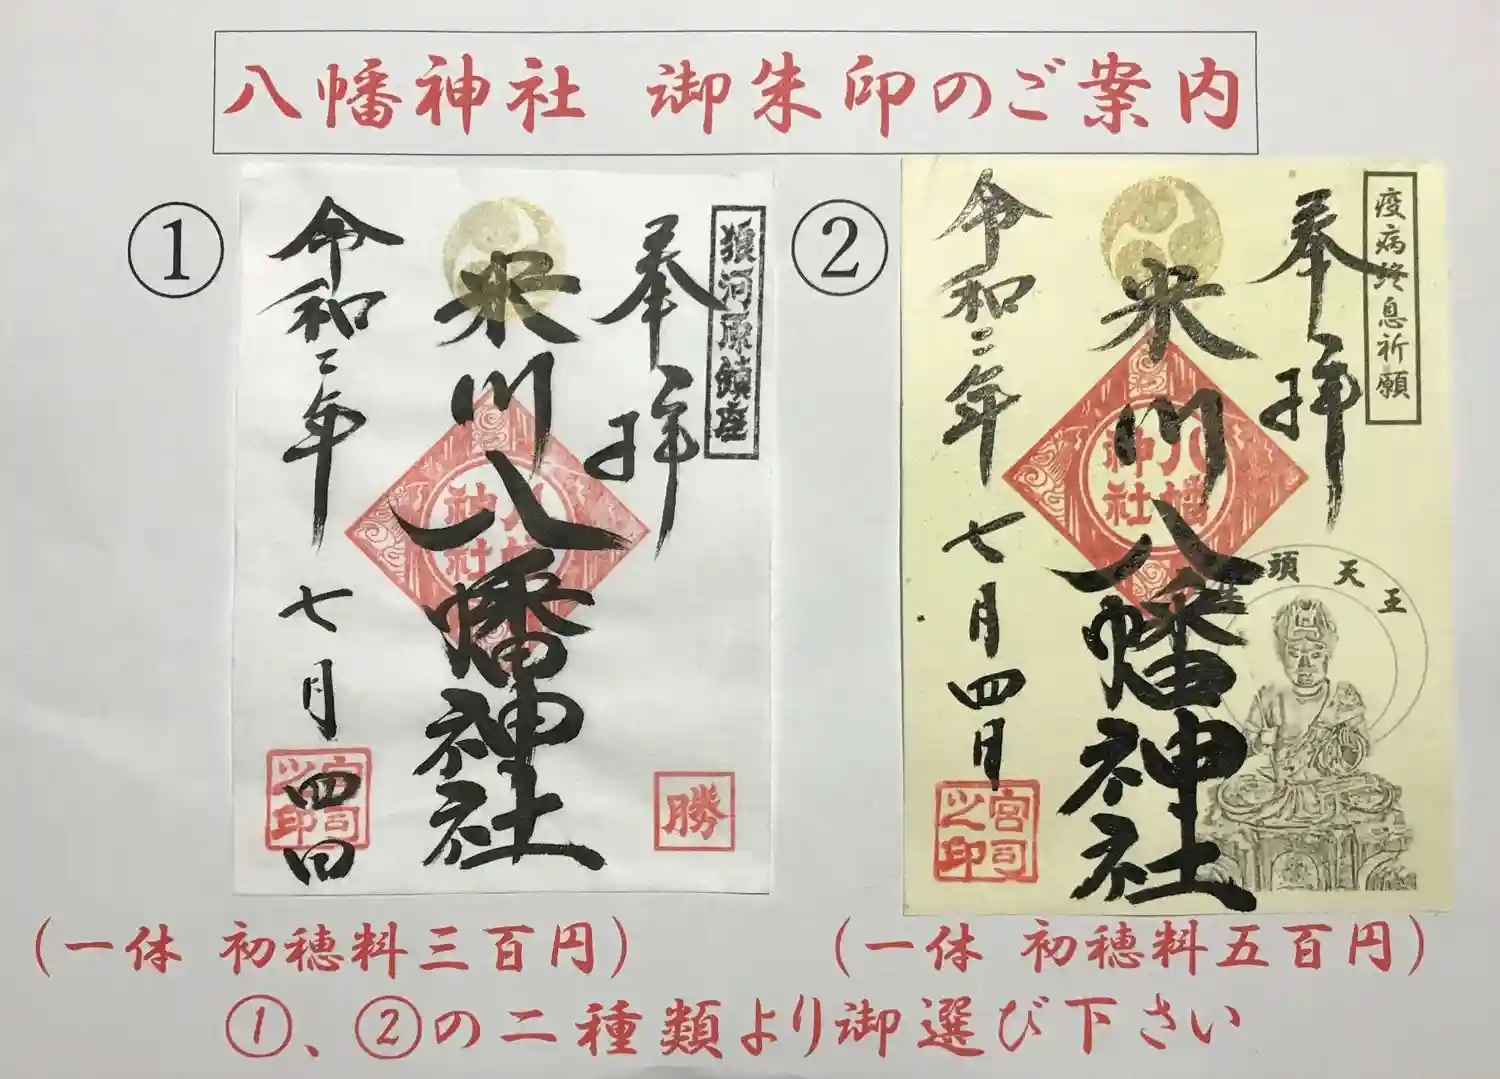 八幡神社 御朱印のご案内
①
狼河原鎮座
奉拝
米川八幡神社
八幡神社
令和二年 七月四日
宮司之印
勝
(一体 初穂料三百円)
②
疫病終息祈願
奉拝
米川八幡神社
八幡神社
令和二年 七月四日
宮司之印
牛頭天王
(一体 初穂料五百円)
①、②の二種類より御選び下さい